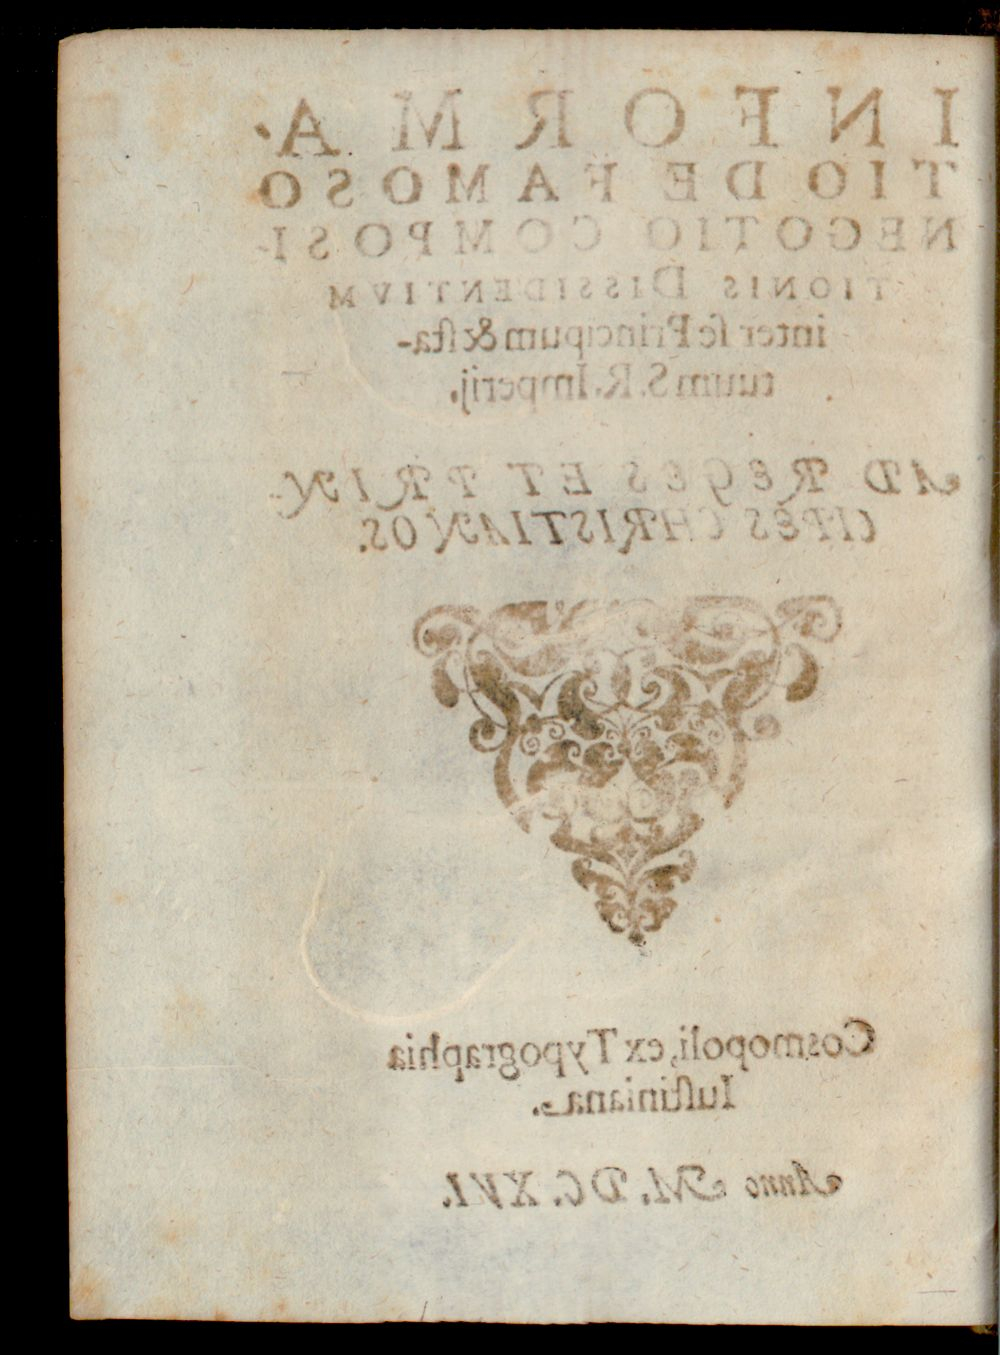 INFORMA-
TIO DE FAMOSO
NEGOTIO COMPOSI-
TIONIS DISSIDENTIVM
inter ſe Principum & ſta-
tuum S. R. Imperij.
AD REGES ET PRIN
CIPES CHRISTIANOS.
Cosmopoli, ex Typographia
Iuſtiniana.
Anno M. DC. XVI.